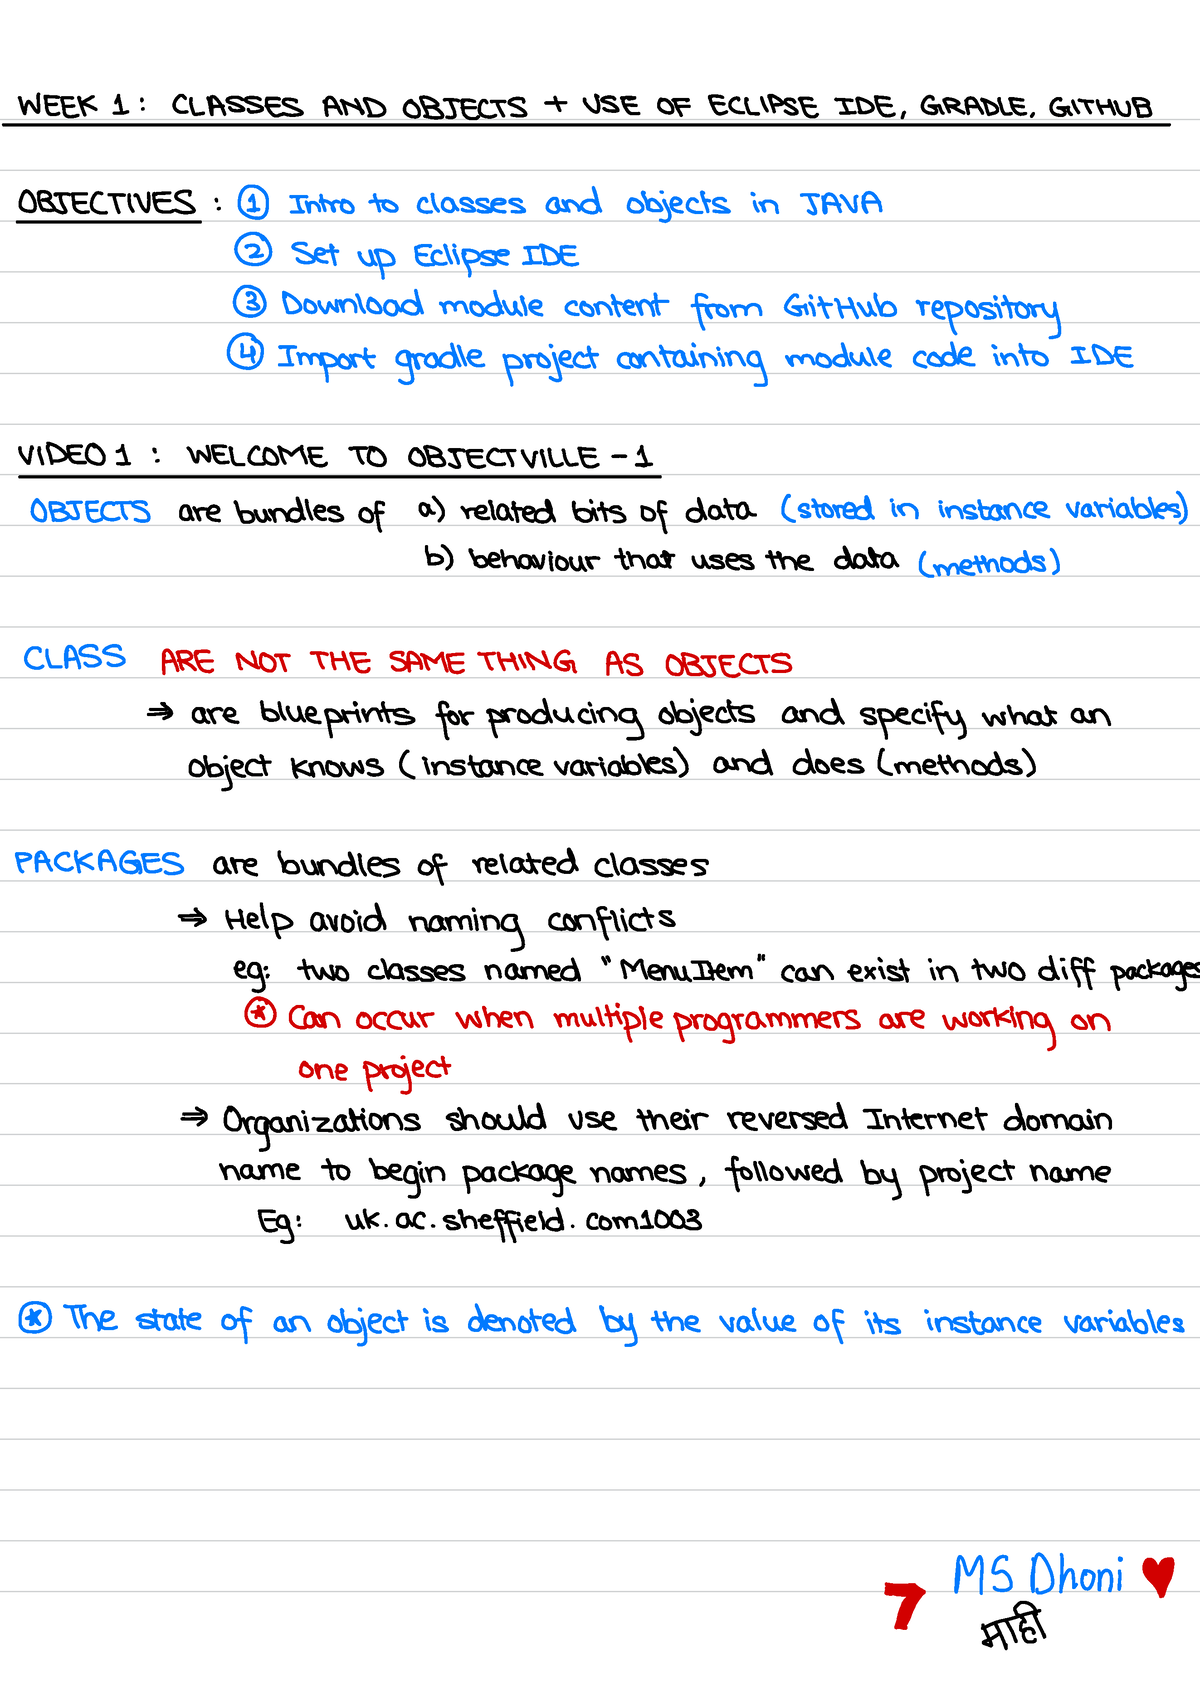 WEEK 1: CLASSES AND OBJECTS + USE OF ECLIPSE IDE, GRADLE, GITHUB
OBJECTIVES : ① Intro to classes and objects in JAVA
② Set up Eclipse IDE
③ Download module content from GitHub repository
④ Import gradle project containing module code into IDE
VIDEO 1 : WELCOME TO OBJECTVILLE - 1
OBJECTS are bundles of a) related bits of data (stored in instance variables)
b) behaviour that uses the data (methods)
CLASS ARE NOT THE SAME THING AS OBJECTS
⇒ are blueprints for producing objects and specify what an
object knows (instance variables) and does (methods)
PACKAGES are bundles of related classes
⇒ Help avoid naming conflicts
eg: two classes named "MenuItem" can exist in two diff packages
⊛ Can occur when multiple programmers are working on
one project
⇒ Organizations should use their reversed Internet domain
name to begin package names, followed by project name
Eg: uk.ac.sheffield.com1003
⊛ The state of an object is denoted by the value of its instance variables
MS Dhoni ♥
7
माही